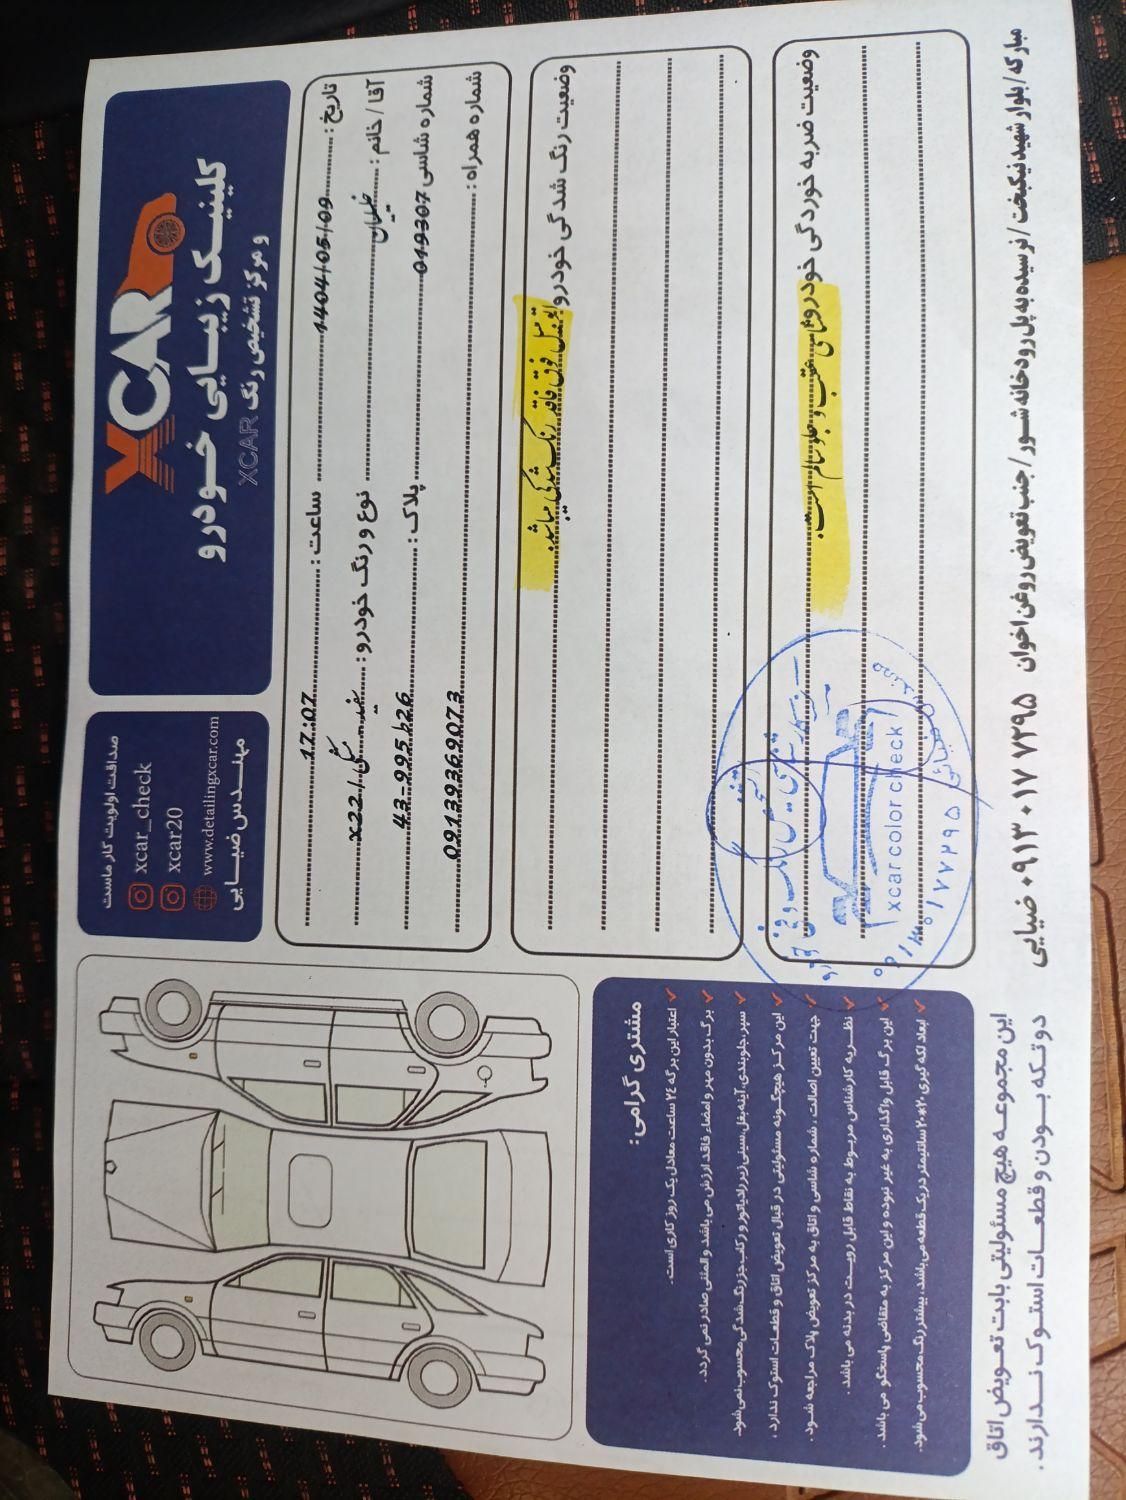 XCAR
کلینیک زیبایی خودرو
و مرکز تشخیص رنگ XCAR
صداقت اولویت کار ماست
xcar_check
xcar20
www.detailingxcar.com
مهندس ضیایی
تاریخ: 1404/05/09 ساعت: 17:07
آقا / خانم: نوع و رنگ خودرو: x22 / مشکی
شماره شاسی 019307 پلاک: 43-995 b26
شماره همراه: 09139369073
وضعیت رنگ شدگی خودرو: اتومبیل فوق فاقد رنگ شدگی میباشد.
وضعیت ضربه خوردگی خودرو: شاسی عقب و جلو سالم است.
xcarcolorcheck
مشتری گرامی:
اعتبار این برگه ۲۴ ساعت معادل یک روز کاری است.
برگ بدون مهر و امضاء فاقد ارزش می باشد و المثنی صادر نمی گردد.
سپر، جلوبندی، آینه بغل، سینی زیر رادیاتور و رکاب جز رنگ شدگی محسوب نمی شود
این مرکز هیچگونه مسئولیتی در قبال تعویض اتاق و قطعات استوک ندارد.
جهت تعیین اصالت، شماره شاسی و اتاق به مرکز تعویض پلاک مراجعه شود.
نظریه کارشناس مربوط به نقاط قابل رویت در بدنه می باشد.
این برگ قابل واگذاری به غیر نبوده و این مرکز به متقاضی پاسخگو می باشد.
ابعاد لکه گیری ۲۰*۲۰ سانتیمتر در یک قطعه می باشد، بیشتر رنگ محسوب می شود.
این مجموعه هیچ مسئولیتی بابت تعویض اتاق
دوتکه بودن و قطعات استوک ندارند.
مبارکه / بلوار شهید نیکبخت / نرسیده به پل رودخانه شور / جنب تعویض روغن اخوان ۰۹۱۳۰۱۷۷۲۹۵ ضیایی